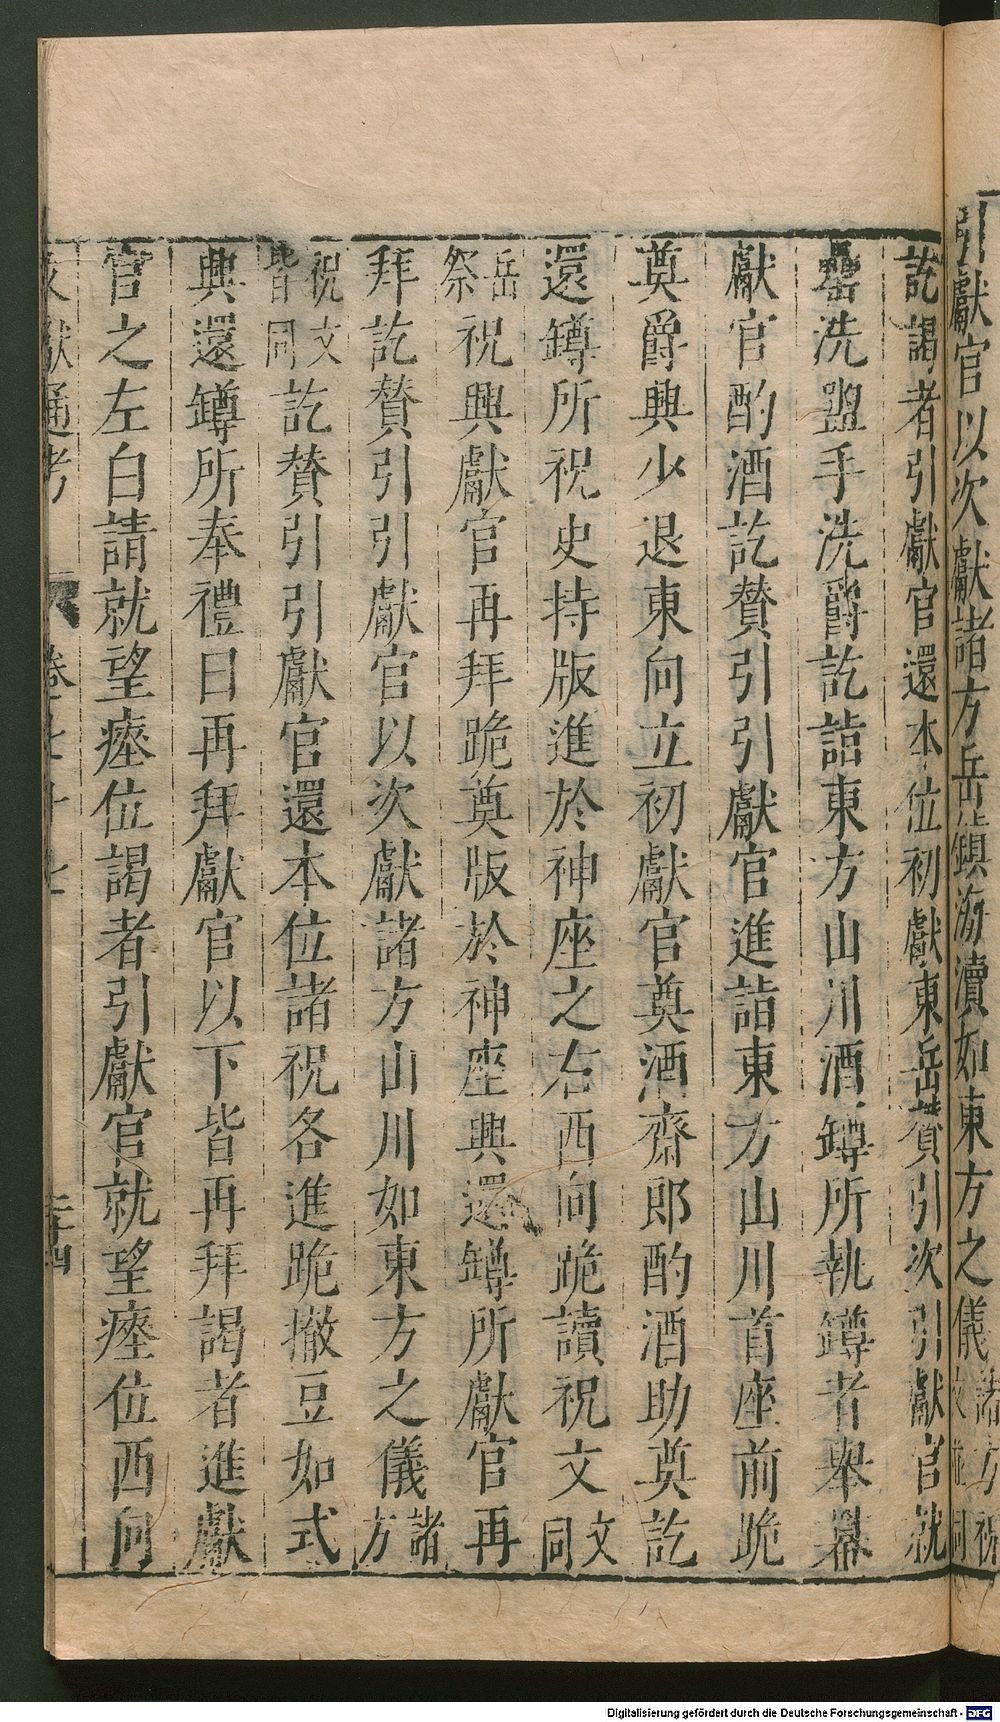 引獻官以次獻諸方岳鎮海瀆如東方之儀諸方祝文並同
訖謁者引獻官還本位初獻東岳贊引次引獻官就
罍洗盥手洗爵訖詣東方山川酒罇所執罇者舉冪
獻官酌酒訖贊引引獻官進詣東方山川首座前跪
奠爵興少退東向立初獻官奠酒齋郎酌酒助奠訖
還罇所祝史持版進於神座之右西向跪讀祝文文同
岳祭祝興獻官再拜跪奠版於神座興還罇所獻官再
拜訖贊引引獻官以次獻諸方山川如東方之儀諸方
祝文皆同訖贊引引獻官還本位諸祝各進跪撤豆如式
興還罇所奉禮曰再拜獻官以下皆再拜謁者進獻
官之左白請就望瘞位謁者引獻官就望瘞位西向
文獻通考 卷七十七 二十四
Digitalisierung gefördert durch die Deutsche Forschungsgemeinschaft - DFG